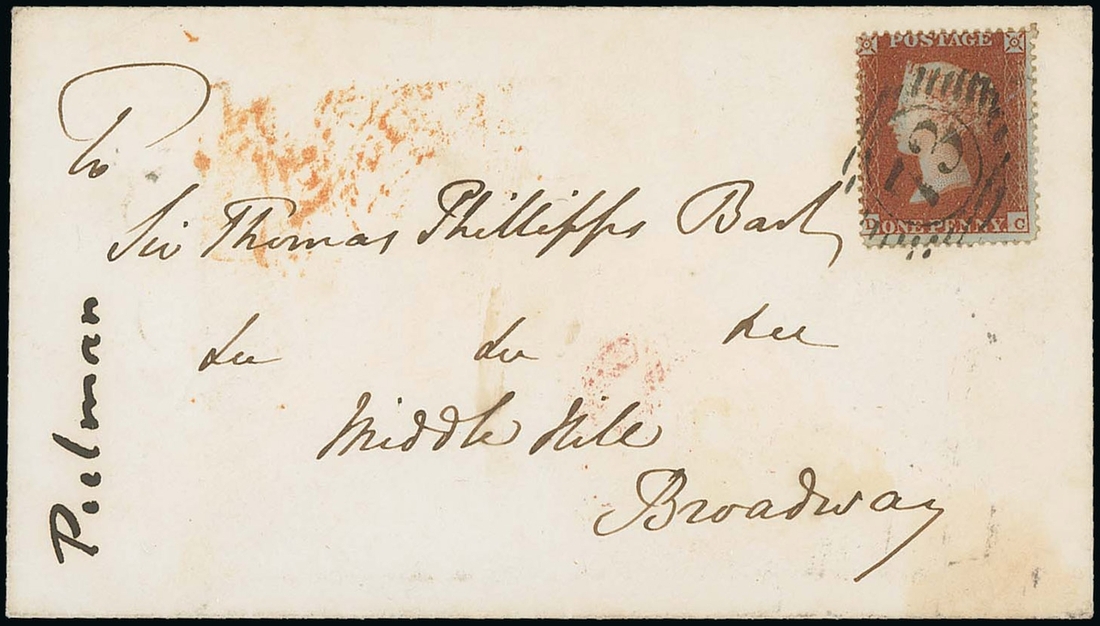 To
Sir Thomas Phillipps Bart
&c &c &c
Middle Hill
Broadway
Pulman
POSTAGE
ONE PENNY
G